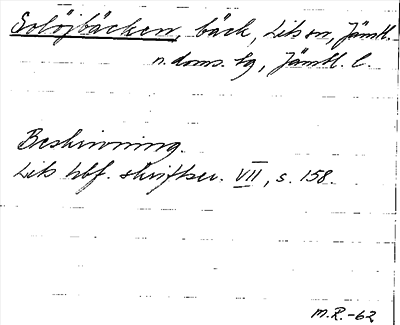 Solöjbäcken, bäck, Lits sn, Jämtl.
n. doms. sg, Jämtl. l.
Beskrivning.
Lits hbf. skriftser. VII, s. 158.
M.R.-62